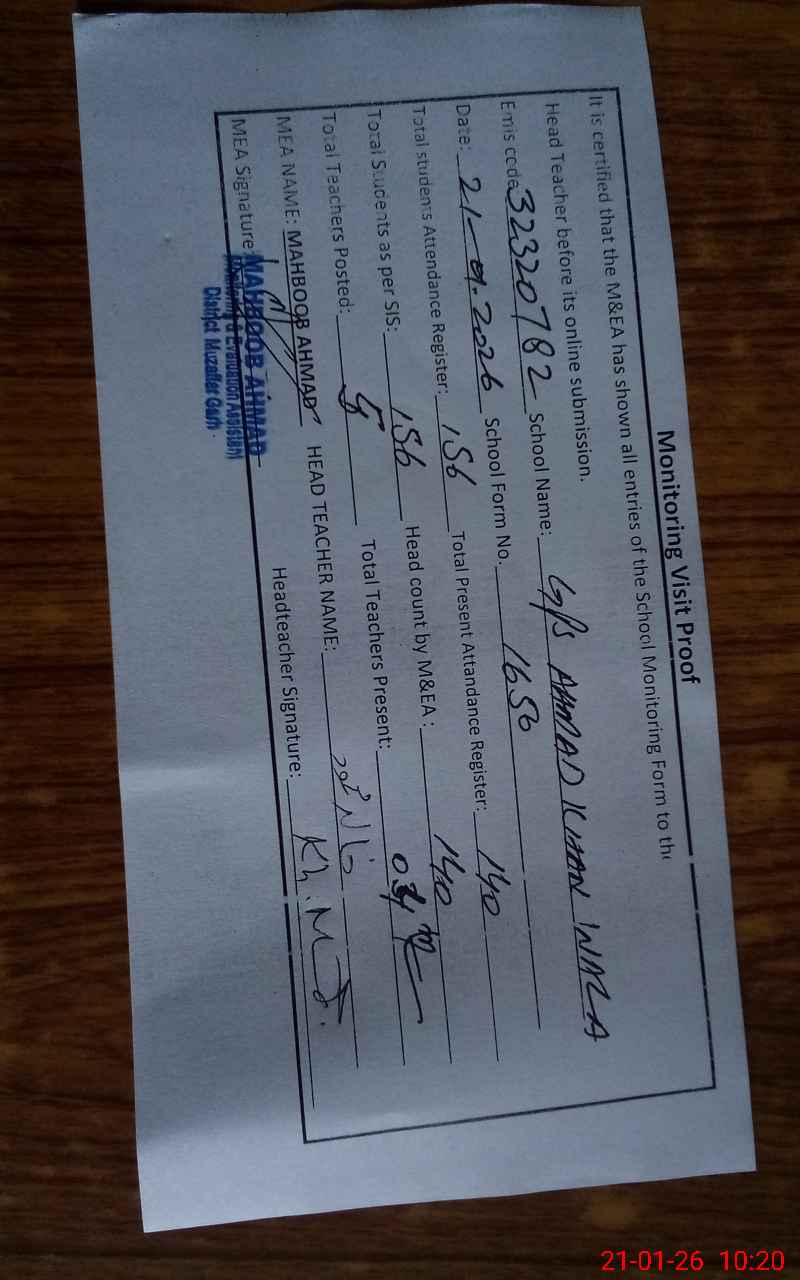 Monitoring Visit Proof
It is certified that the M&EA has shown all entries of the School Monitoring Form to the
Head Teacher before its online submission.
Emis code 32320782 School Name: G/PS AHMAD KHAN WALA
Date: 21-01.2026 School Form No. 1656
Total students Attendance Register: 156 Total Present Attandance Register: 140
Total Students as per SIS: 156 Head count by M&EA : 140
Total Teachers Posted: 5 Total Teachers Present:
MEA NAME: MAHBOOB AHMAD HEAD TEACHER NAME:
MEA Signature: Headteacher Signature:
MAHBOOB AHMAD
Monitoring & Evaluation Assistant
District Muzaffar Garh
21-01-26 10:20